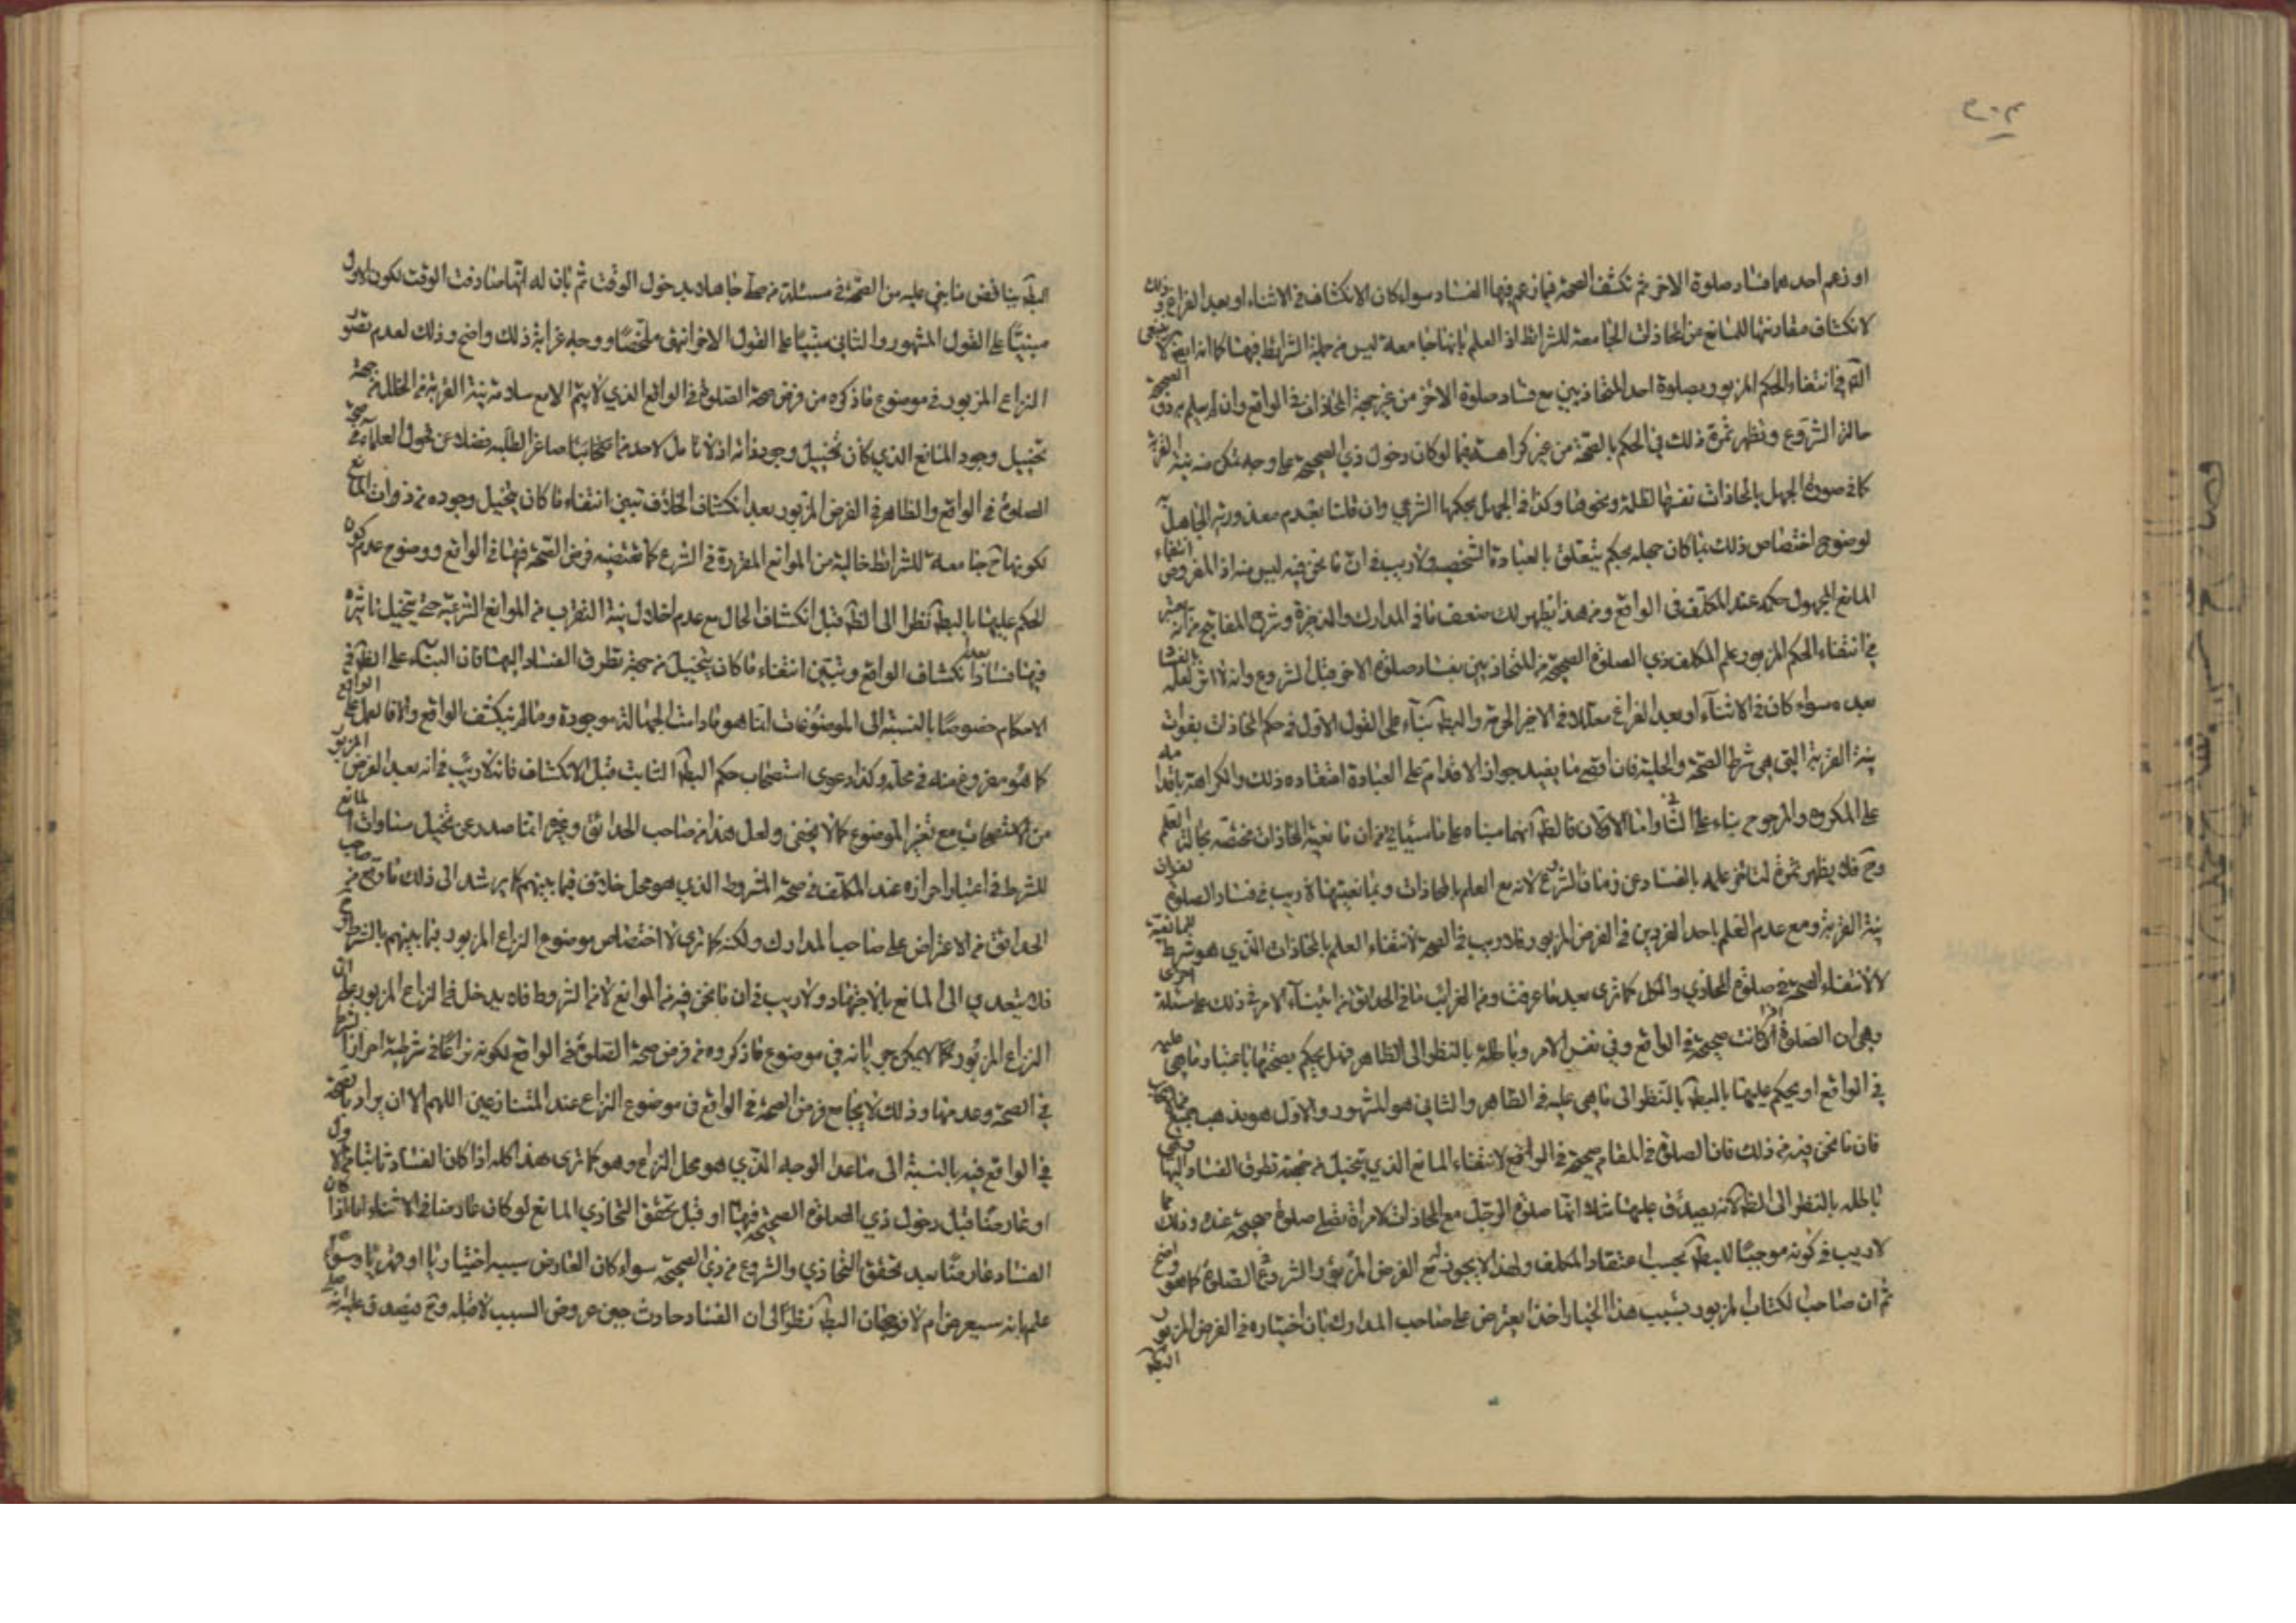 او زعم احدهما فساد صلوة الاخر ثم تكشف الصحة فيما زعم فيها الفساد سواء كان الانكشاف في الاثناء او بعد الفراغ وذلك
لانكشاف مقارنتها للمانع من المحاذات الجامعة للشرائط اذ العلم بانها جامعة ليس من جملة الشرائط فيها كما انه لا ينبغي
في انتفاء الحكم المزبور بصلوة احد المتحاذيين مع فساد صلوة الاخر من غير جهة المحاذات في الواقع وان لم يعلم به ذو الصحيحة
حالة الشروع وتظهر ثمرة ذلك في الحكم بالصحة من غير كراهة فيما لو كان دخول ذي الصحيحة على وجه تمكن منه نية القربة
كما في صورة الجهل بالمحاذات نفسها لظلمة ونحوها وكذا في الجهل بحكمها الشرعي وان قلنا بعدم معذورية الجاهل
لوضوح اختصاص ذلك بما كان جهله بحكم يتعلق بالعبادة الشخصية ولا ريب في ان ما نحن فيه ليس منه اذ المفروض انتفاء
المانع المجهول حكمه عند المكلف في الواقع ومن هذا يظهر لك ضعف ما في المدارك والذخيرة وشرح المفاتيح من انه يعتبر
في انتفاء الحكم المزبور علم المكلف ذي الصلوة الصحيحة من المتحاذيين بفساد صلوة الاخر قبل الشروع وانه لا اثر لعلمه بالفساد
بعده سواء كان في الاثناء او بعد الفراغ معللا في الاخير الحرمة والبطلان بناء على القول الاول في حكم المحاذات بفوات
نية القربة التي هي شرط الصحة والحلية فان اقصى ما يفيد جواز الاقدام على العبادة اعتقاده ذلك والكراهة باقدامه
على المكروه والمرجوح بناء على الثاني واما الاولان فالظ انهما مبناه على ما سيأتي من ان مانعية المحاذات مختصة بحالة العلم
وح فلا يظهر ثمرة لتأخر علمه بالفساد عن زمان الشروع لانه مع العلم بالمحاذات وبمانعيتها لا ريب في فساد الصلوة لفوات
نية القربة ومع عدم العلم باحد الفردين في الفرض المزبور فلا ريب في الصحة لانتفاء العلم بالمحاذات الذي هو شرط للمانعية
لا لانتفاء الصحة في صلوة المحاذي والكل كما ترى بعد ما عرفت ومن الغرائب ما في الحدائق من ابتناء الامر في ذلك على مسئلة اخرى
وهي ان الصلوة اذا كانت صحيحة في الواقع وفي نفس الامر وباطلة بالنظر الى الظاهر فهل يحكم بصحتها باعتبار ما هي عليه
في الواقع او يحكم عليها بالبطلان بالنظر الى ما هي عليه في الظاهر والثاني هو المشهور والاول هو مذهب
فان ما نحن فيه من ذلك فان الصلوة في المقام صحيحة في الواقع لانتفاء المانع الذي يتخيل من جهته تطرق الفساد اليها وهي
باطلة بالنظر الى الظ لانه يصدق عليها مثلا انها صلوة الرجل مع المحاذات لامراة تصلي صلوة صحيحة عنده وذلك مما
لا ريب في كونه موجبا للبطلان بحسب اعتقاد المكلف ولهذا لا يجوز له مع الفرض المزبور الشروع في الصلوة كما هو واضح
ثم ان صاحب الكتاب المزبور بسبب هذا الخيار اخذ يعترض على صاحب المدارك بان اختياره في الفرض المزبور
البطلان
البطلان يناقض ما بنى عليه من الصحة في مسئلة من صلى جاهلا بدخول الوقت ثم بان له انها صادفت الوقت لكون الاول
مبنيا على القول المشهور والثاني مبنيا على القول الاخر انتهى ملخصا ووجه غرابة ذلك واضح وذلك لعدم تصور
النزاع المزبور في موضوع ما ذكره من فرض صحة الصلوة في الواقع الذي لا يتم الا مع سلامة نية القربة من الخلل من جهة
تخييل وجود المانع الذي كان تخييل وجود مانه اذ لا تامل لاحد من اصحابنا صاغر الطلبة فضلا عن فحول العلماء في صحة
الصلوة في الواقع والظاهر في الفرض المزبور بعد انكشاف الخلاف تبين انتفاء ما كان يتخيل وجوده من ذوات المانع
لكونها ح جامعة للشرائط خالية من الموانع المقررة في الشرع كما يقتضيه فرض الصحة فيها في الواقع ووضوح عدم كون
الحكم عليها بالبطلان نظرا الى الظ قبل انكشاف الحال مع عدم اخلال بنية التقرب من الموانع الشرعية حتى يتخيل تاثيره
فيها فسادا بعد انكشاف الواقع وتبين انتفاء ما كان يتخيل من جهته تطرق الفساد اليها فان البناء على الظ في
الاحكام خصوصا بالنسبة الى الموضوعات انما هو مادامت الجهالة موجودة وما لم ينكشف الواقع والا فالعمل على الواقع
كما هو مفروغ منه في محله وكذا دعوى استصحاب حكم البطلان الثابت قبل الانكشاف فانه لا ريب في انه بعد الفرض المزبور
من الاستصحاب مع تغير الموضوع كما لا يخفى ولعل هذا من صاحب الحدائق وغيره انما صدر عن تخيل مساوات المانع
للشرط في اعتبار احرازه عند المكلف في صحة المشروط الذي هو محل خلاف فيما بينهم كما يرشد الى ذلك ما وقع من صاحب
الحدائق من الاعتراض على صاحب المدارك ولكنه كما ترى لاختصاص موضوع النزاع المزبور فيما بينهم بالشرط
فلا يتعدى الى المانع بالاجتهاد ولا ريب في ان ما نحن فيه من الموانع لا من الشروط فلا يدخل في النزاع المزبور على ان
النزاع المزبور مما لا يمكن جريانه في موضوع ما ذكروه من فرض صحة الصلوة في الواقع لكونه نزاعا في شرطية احراز الشرط
في الصحة وعدمها وذلك لا يجامع فرض الصحة في الواقع في موضوع النزاع عند المتنازعين اللهم الا ان يراد بالصحة
في الواقع فيه بالنسبة الى ما عدا الوجه الذي هو محل النزاع وهو كما ترى هذا كله اذا كان الفساد ثابتا
او عارضا قبل دخول ذي الصلوة الصحيحة فيها او قبل تحقق التحاذي المانع لو كان عارضا في الاثناء اما اذا كان
الفساد عارضا بعد تحقق التحاذي والشروع من ذي الصحيحة سواء كان العارض سببه اختياريا او قهريا وسواء
علم بانه سيعرض ام لا فوجهان البطلان نظرا الى ان الفساد حادث حين عروض السبب لا قبله وح فيصدق عليه انه